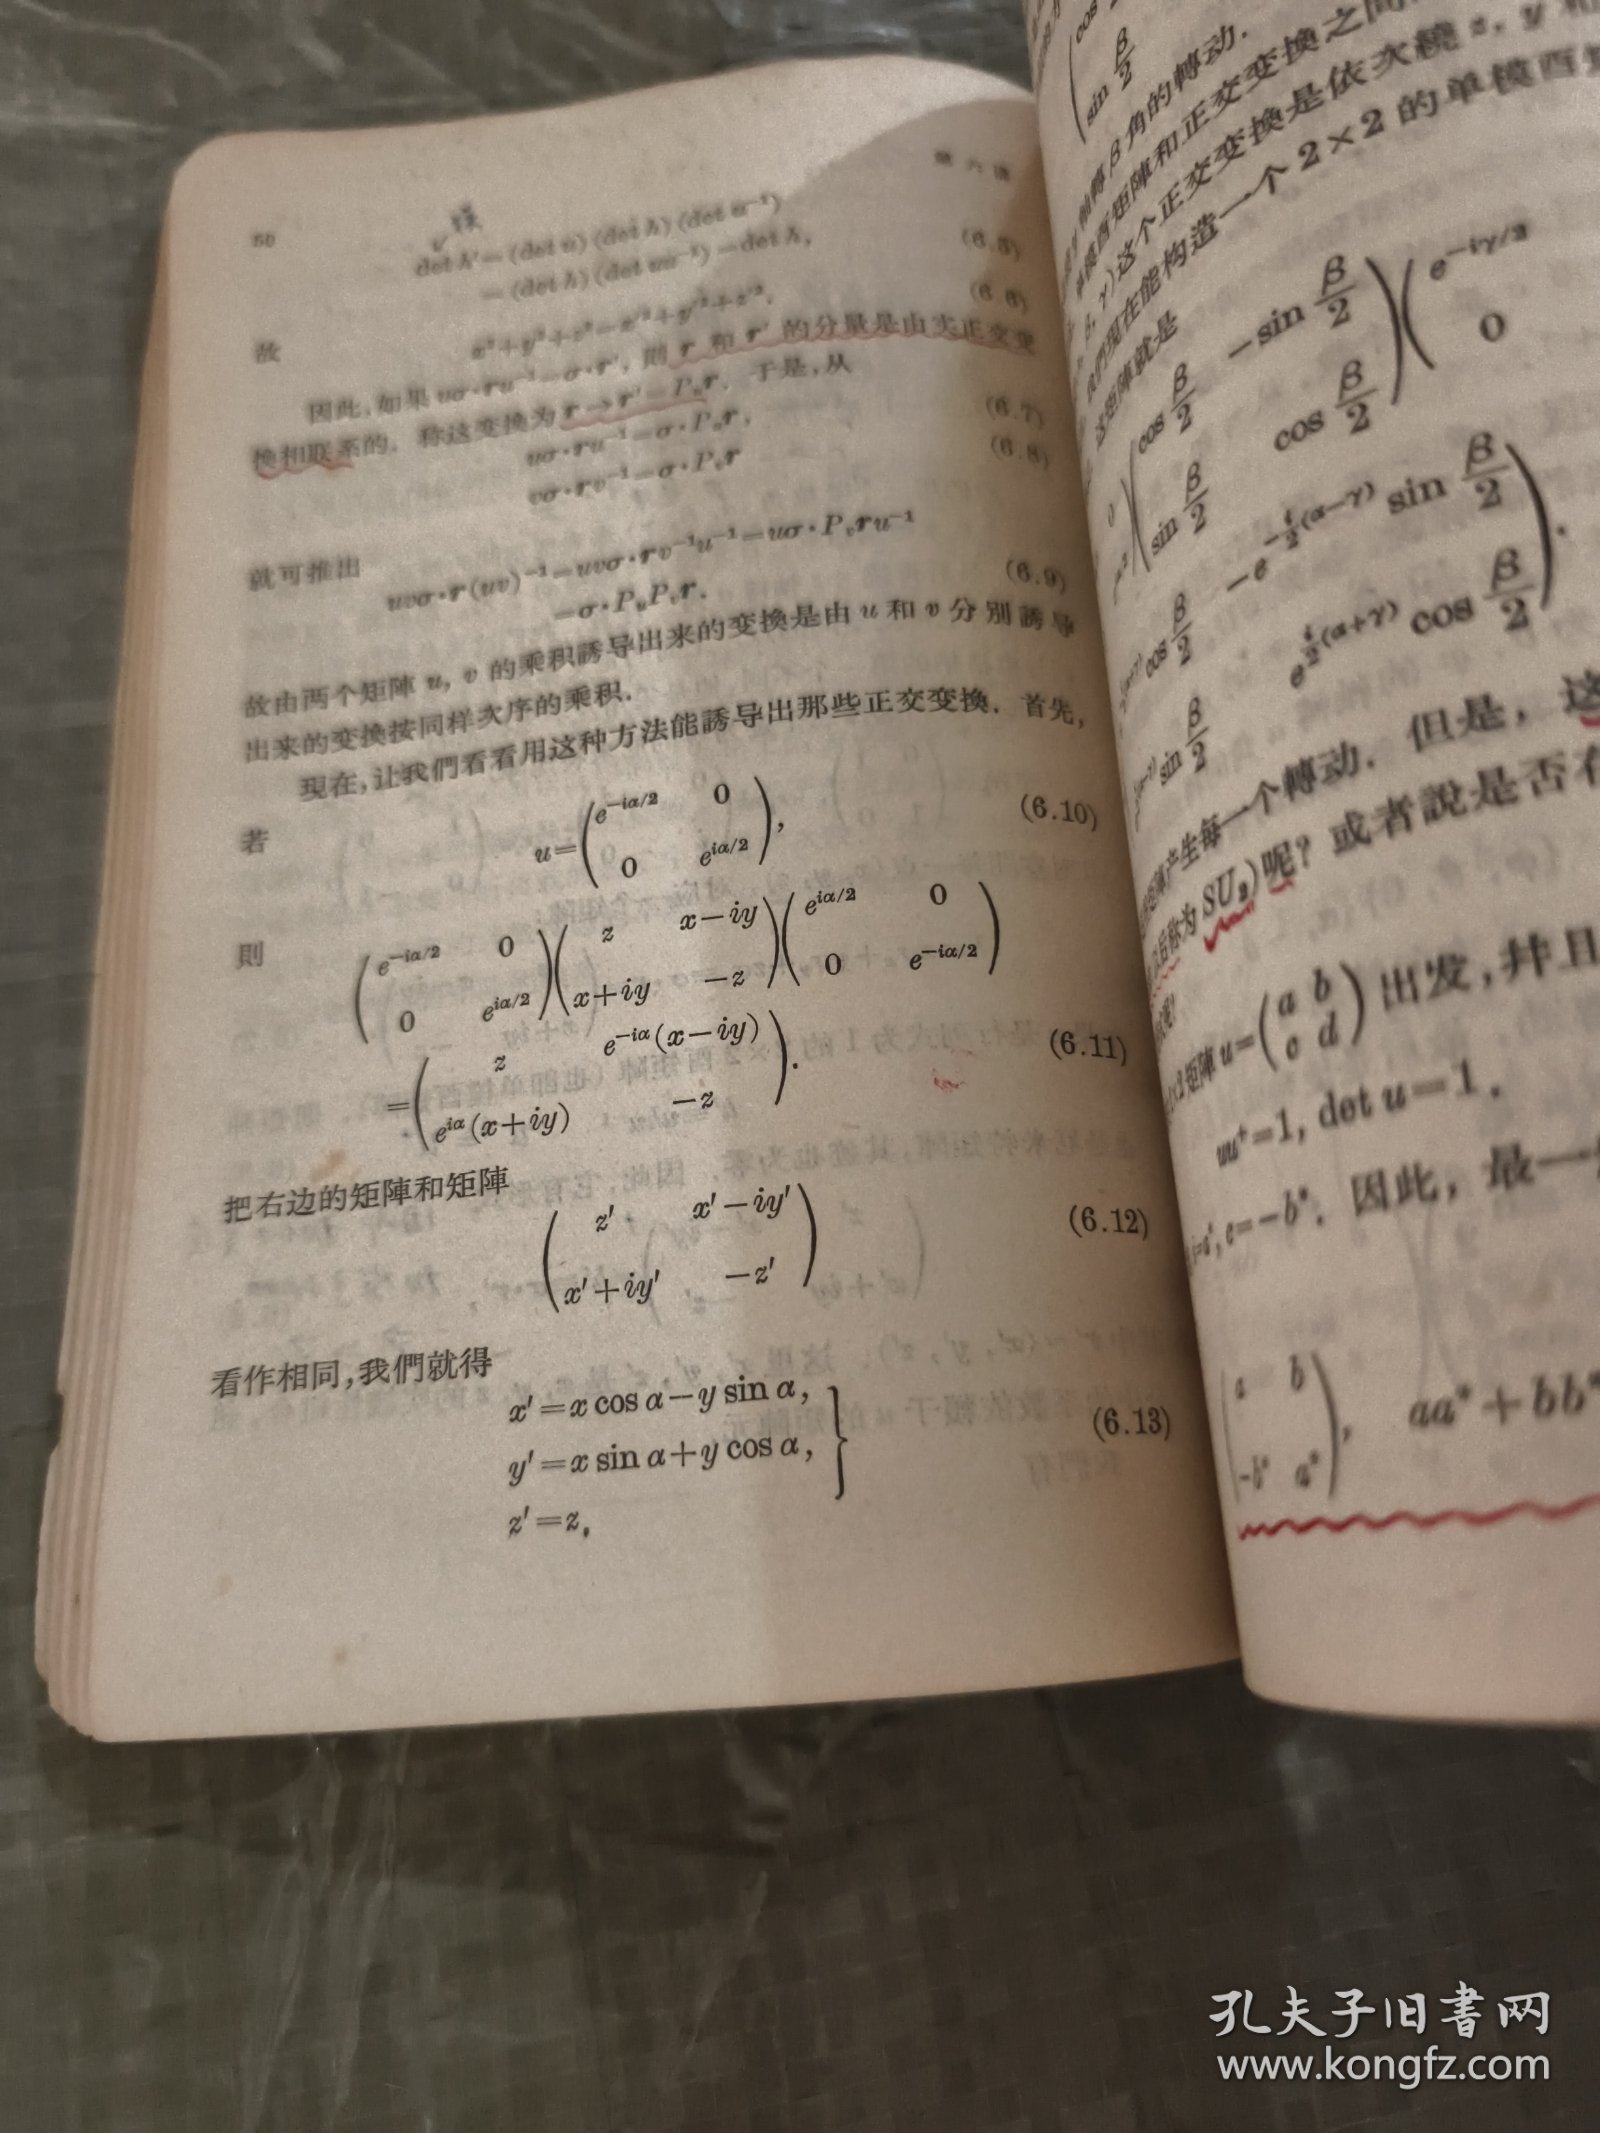 50 第六讲
det h′=(det u)(det h)(det u⁻¹)
=(det h)(det uu⁻¹)=det h, (6.5)
故 x²+y²+z²=x′²+y′²+z′². (6.6)
因此,如果 uσ·ru⁻¹=σ·r′, 則 r 和 r′ 的分量是由实正交变
换相联系的. 称这变换为 r→r′=Pᵤr. 于是,从
uσ·ru⁻¹=σ·Pᵤr, (6.7)
vσ·rv⁻¹=σ·Pᵥr (6.8)
就可推出
uvσ·r(uv)⁻¹=uvσ·rv⁻¹u⁻¹=uσ·Pᵥru⁻¹
=σ·PᵤPᵥr. (6.9)
故由两个矩陣 u, v 的乘积誘导出来的变换是由 u 和 v 分别誘导
出来的变换按同样次序的乘积.
現在,让我們看看用这种方法能誘导出那些正交变换. 首先,
若 u=(e^{-iα/2} 0
0 e^{iα/2}), (6.10)
則 (e^{-iα/2} 0)(z x−iy)(e^{iα/2} 0)
(0 e^{iα/2})(x+iy −z)(0 e^{-iα/2})
=(z e^{-iα}(x−iy)
e^{iα}(x+iy) −z). (6.11)
把右边的矩陣和矩陣
(z′ x′−iy′
x′+iy′ −z′) (6.12)
看作相同,我們就得
x′=x cos α−y sin α,
y′=x sin α+y cos α, (6.13)
z′=z,
sin β/2
β 角的轉动.
单模酉矩陣和正交变换之間
γ)这个正交变换是依次繞 z, y 和
我們現在能构造一个 2×2 的单模酉
这矩陣就是
(cos β/2 −sin β/2)(e^{-iγ/2}
(sin β/2 cos β/2)(0
cos β/2 −e^{-i/2(α−γ)} sin β/2
sin β/2 e^{i/2(α+γ)} cos β/2).
产生每一个轉动. 但是, 这
后称为 SU₂)呢? 或者說是否存
矩陣 u=(a b
c d) 出发,并且
uu⁺=1, det u=1.
c=−b*. 因此, 最一
(a b
−b* a*), aa*+bb*
孔夫子旧書网
www.kongfz.com